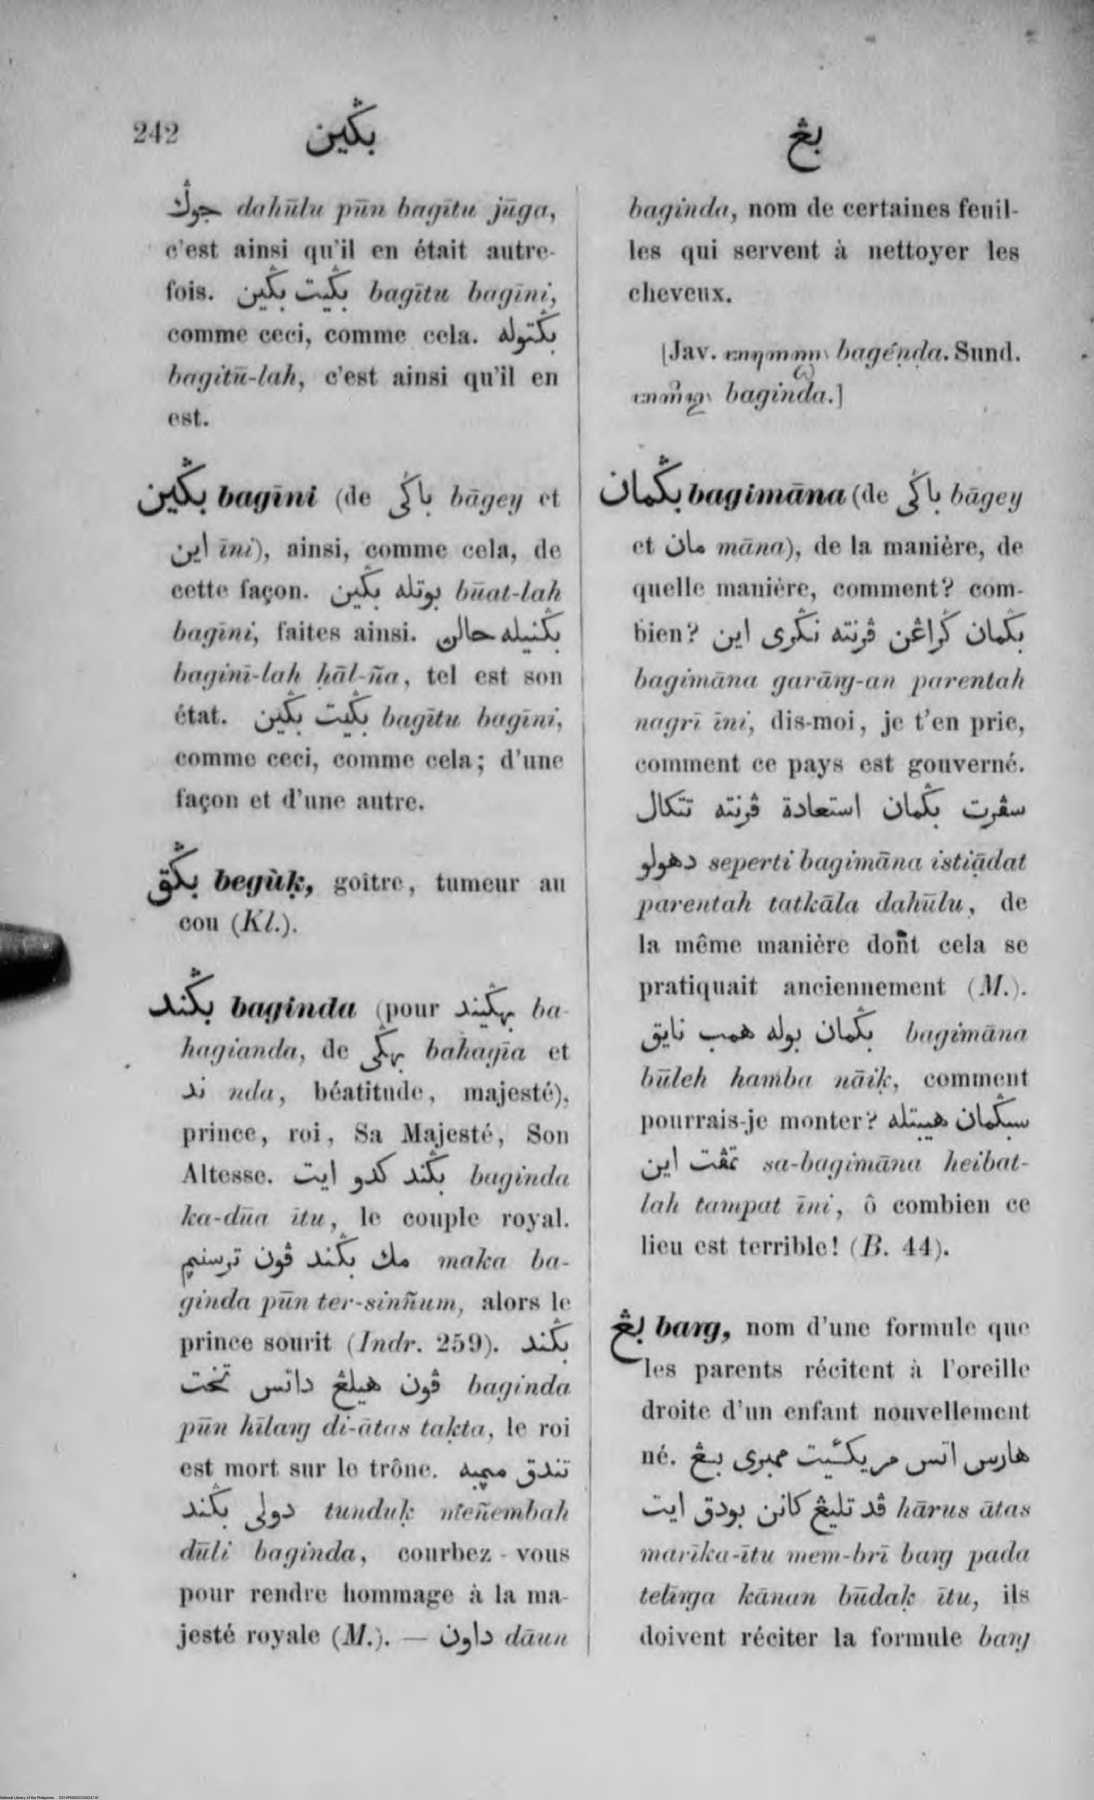 242
بڬين
بڠ
جوڬ dahūlu pūn bagītu jūga,
c'est ainsi qu'il en était autre-
fois. بڬيت بڬين bagītu bagīni,
comme ceci, comme cela. بڬتوله
bagitū-lah, c'est ainsi qu'il en
est.
بڬين bagīni (de باڬی bāgey et
اين īni), ainsi, comme cela, de
cette façon. بوتله بڬين būat-lah
bagīni, faites ainsi. بڬنيله حالن
baginī-lah ḥāl-ña, tel est son
état. بڬيت بڬين bagītu bagīni,
comme ceci, comme cela; d'une
façon et d'une autre.
بڬق begùḳ, goître, tumeur au
cou (Kl.).
بڬند baginda (pour بهڬيند ba-
hagianda, de بهڬی bahagīa et
ند nda, béatitude, majesté),
prince, roi, Sa Majesté, Son
Altesse. بڬند كدو ايت baginda
ka-dūa ītu, le couple royal.
مك بڬند ڤون ترسنيم maka ba-
ginda pūn ter-sinñum, alors le
prince sourit (Indr. 259). بڬند
ڤون هيلڠ داتس تخت baginda
pūn hīlaŋ di-ātas taḳta, le roi
est mort sur le trône. تندق ميمبه
دولی بڬند tunduḳ meñembah
dūli baginda, courbez-vous
pour rendre hommage à la ma-
jesté royale (M.). — داون dāun
baginda, nom de certaines feuil-
les qui servent à nettoyer les
cheveux.
[Jav. bagéṇḍa. Sund.
baginda.]
بڬمان bagimāna (de باڬی bāgey
et مان māna), de la manière, de
quelle manière, comment? com-
bien? بڬمان ڬراڠن ڤرنته نڬری اين
bagimāna garāŋ-an parentah
nagrī īni, dis-moi, je t'en prie,
comment ce pays est gouverné.
سڤرت بڬمان استعادة ڤرنته تتكال
دهولو seperti bagimāna istiạ̄dat
parentah tatkāla dahūlu, de
la même manière dont cela se
pratiquait anciennement (M.).
بڬمان بوله همب نايق bagimāna
būleh hamba nāiḳ, comment
pourrais-je monter? سبڬمان هيبتله
تمڤت اين sa-bagimāna heibat-
lah tampat īni, ô combien ce
lieu est terrible! (B. 44).
بڠ baŋ, nom d'une formule que
les parents récitent à l'oreille
droite d'un enfant nouvellement
né. هارس اتس مريكئيت ممبری بڠ
ڤد تليڠ كانن بودق ايت hārus ātas
marīka-ītu mem-brī baŋ pada
telīŋa kānan būdaḳ ītu, ils
doivent réciter la formule baŋ